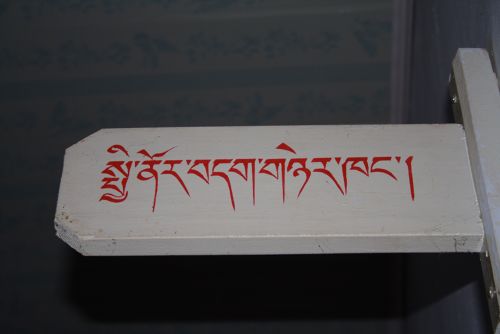 སྤྱི་ནོར་བདག་གཉེར་ཁང་།